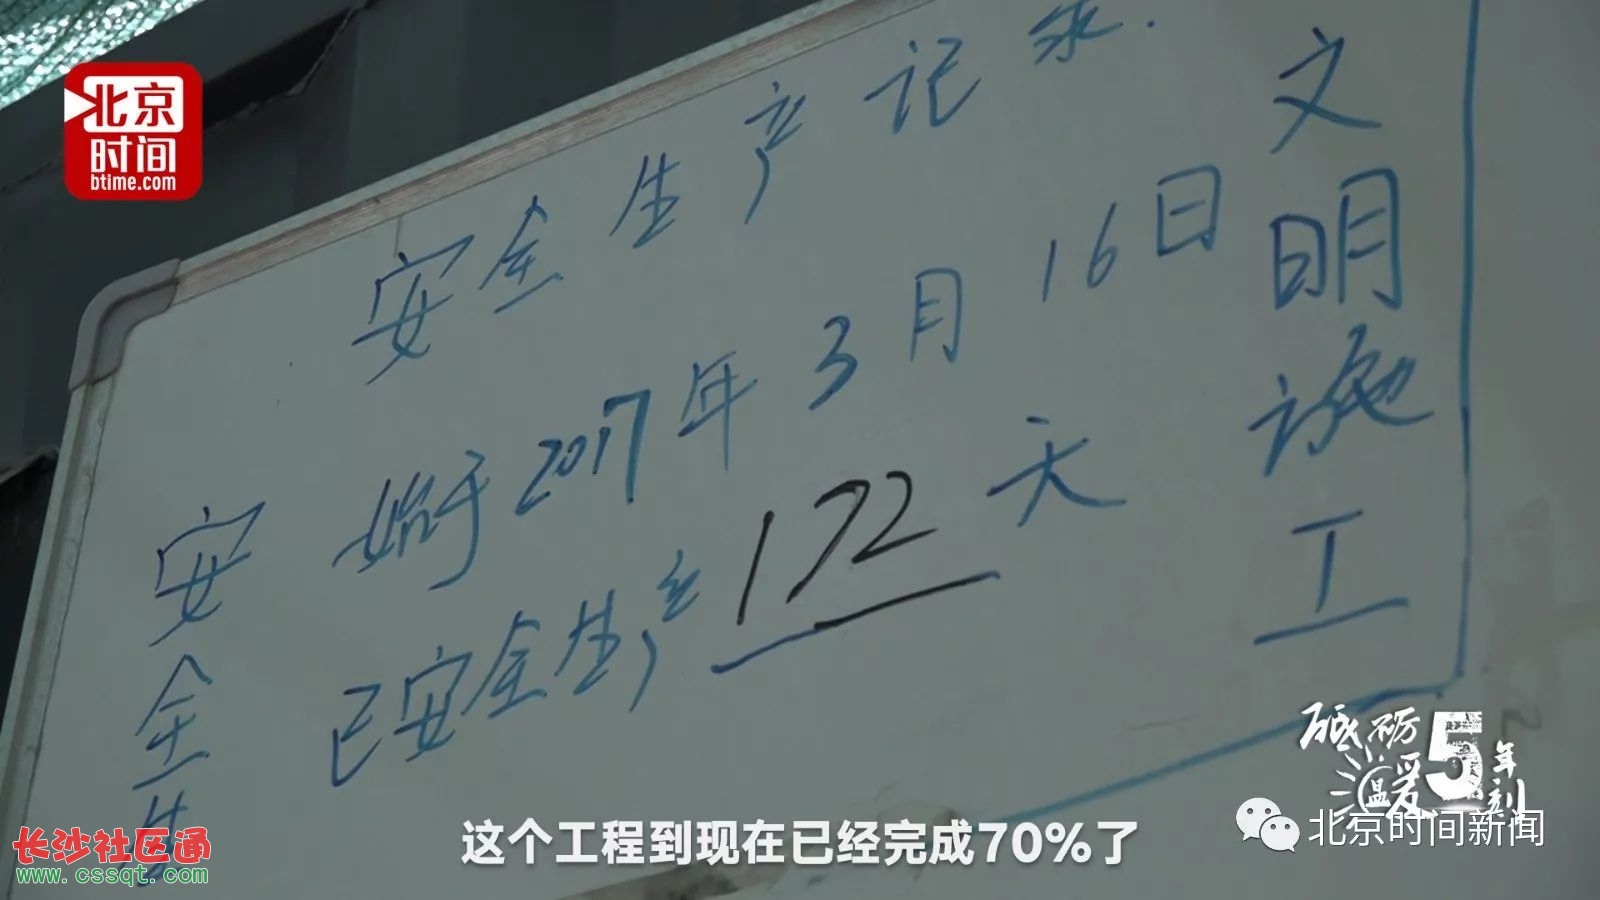 北京
时间
btime.com
安全生产记录.
始于2017年3月16日
已安全生产172天
文明施工
安全生
砥砺5年
温暖
北京时间新闻
这个工程到现在已经完成70%了
长沙社区通
www.cssqt.com